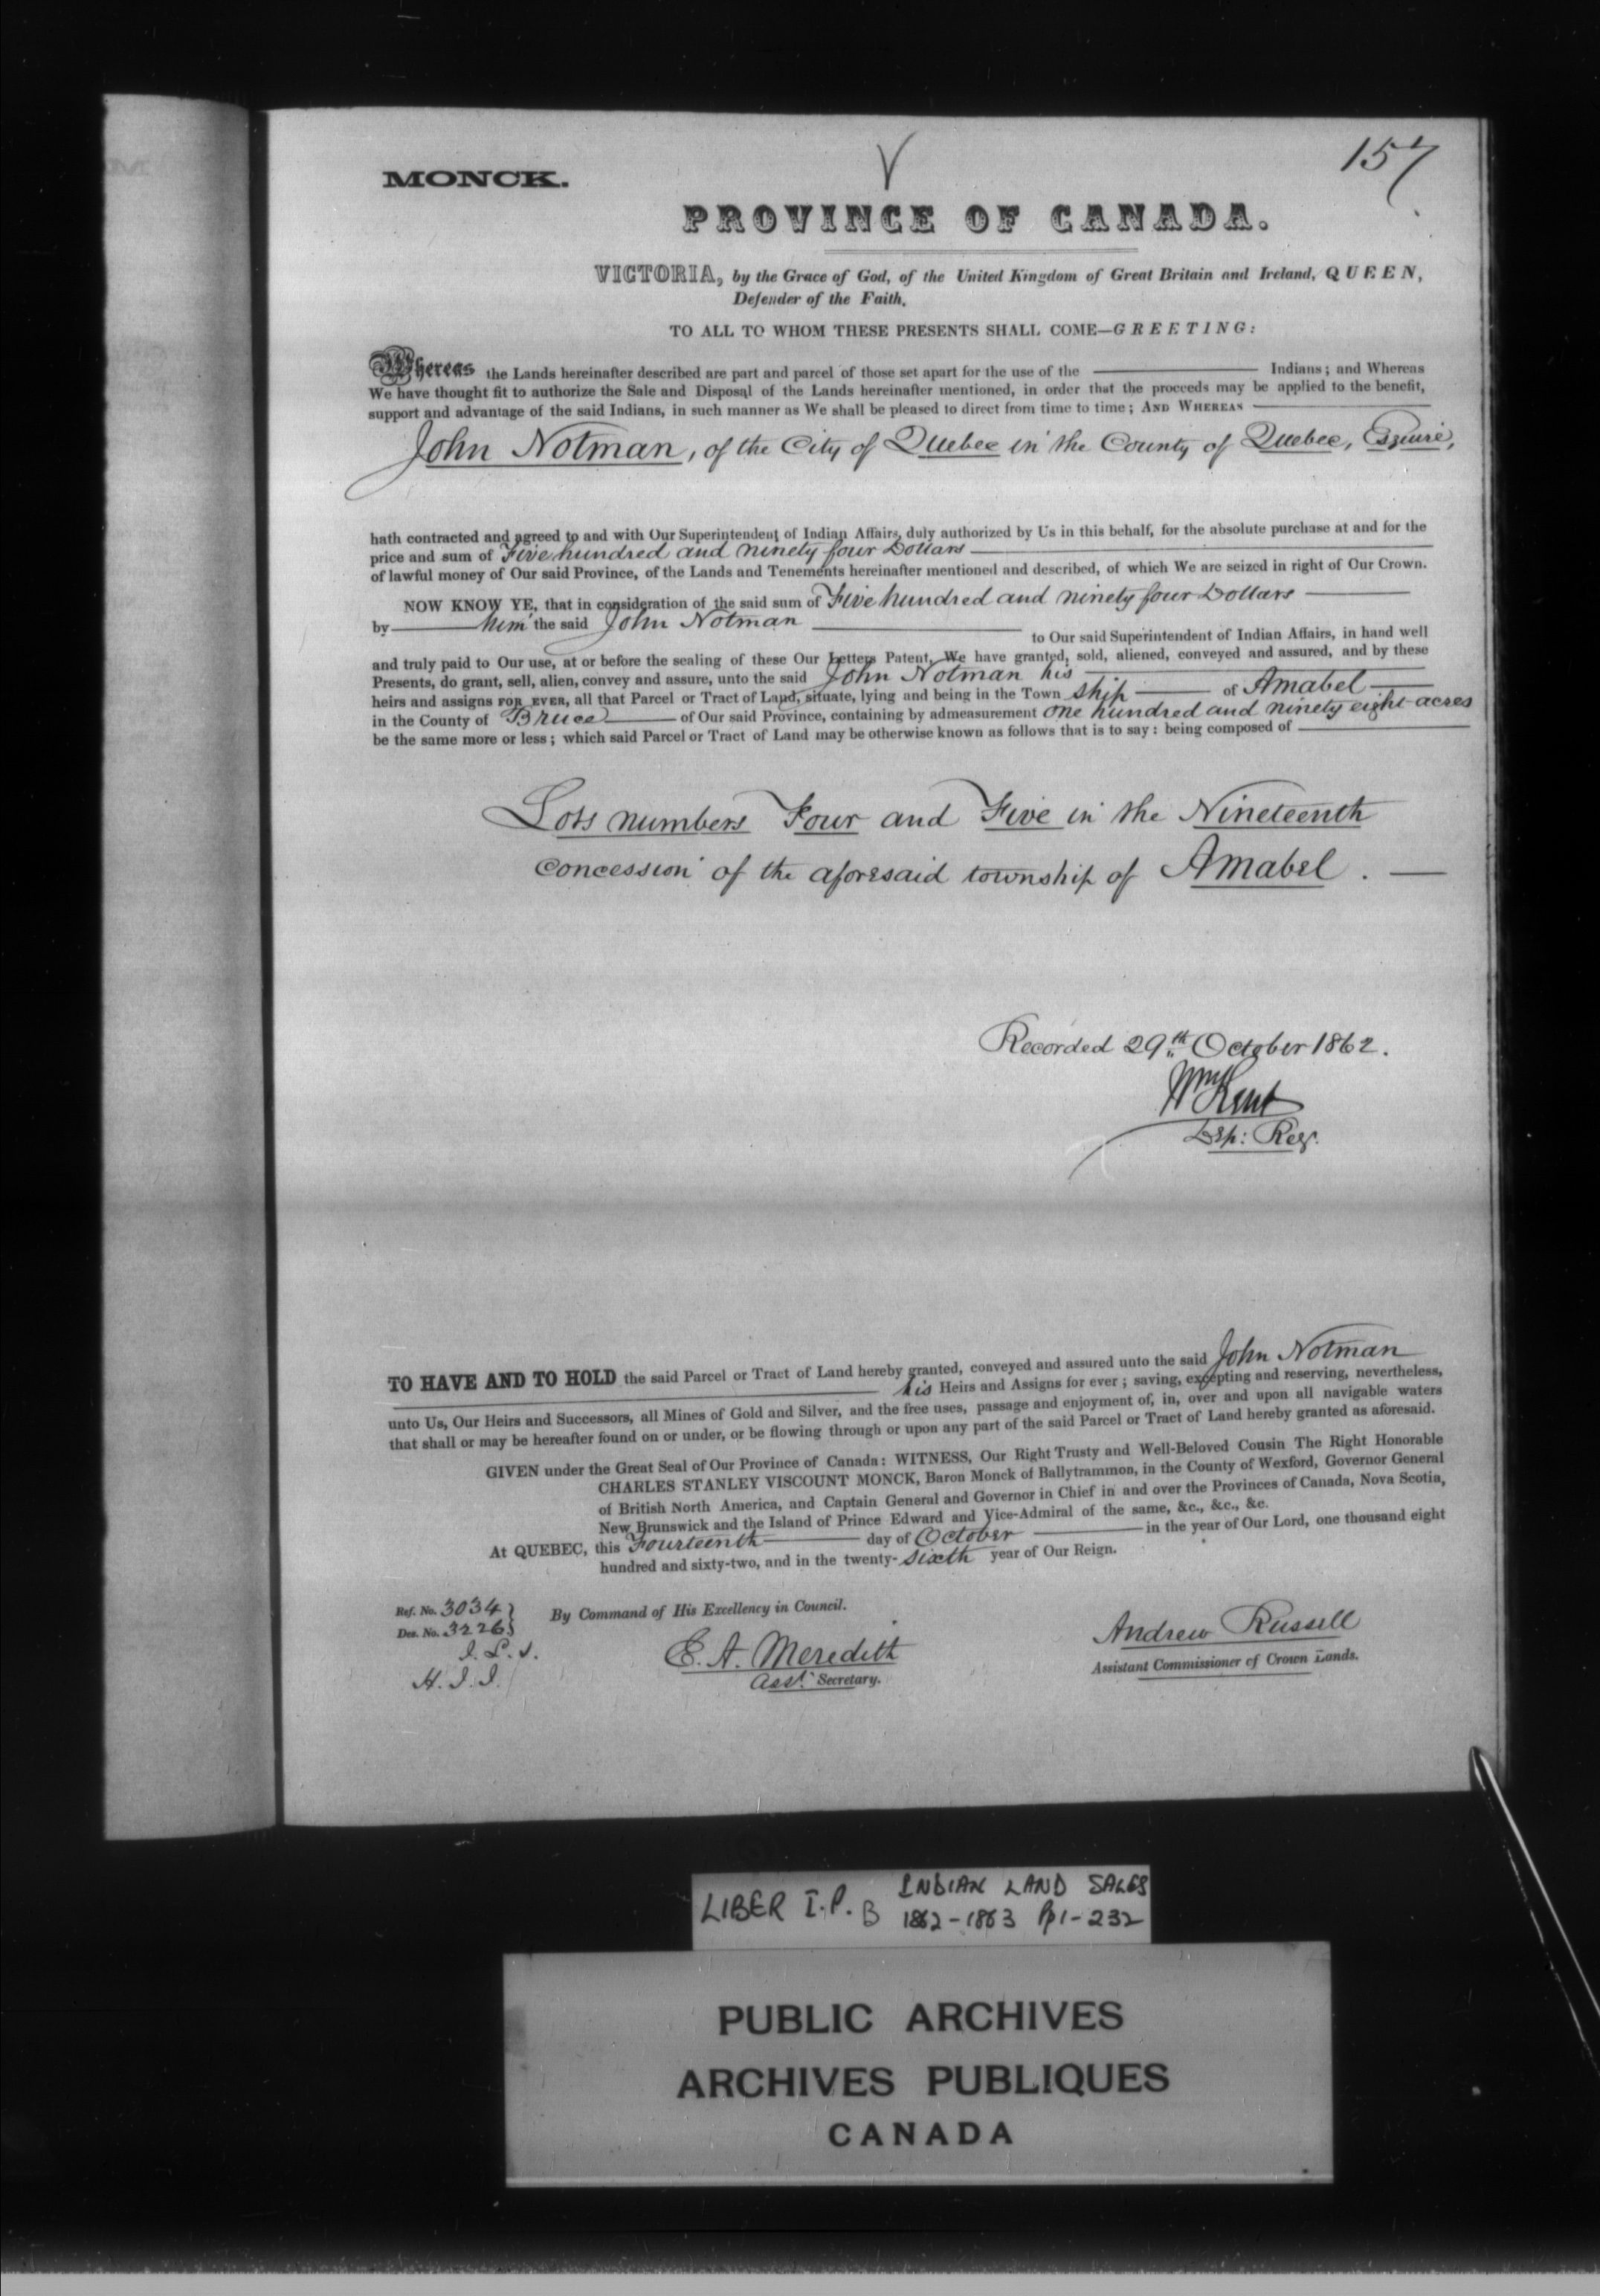 157
MONCK.
PROVINCE OF CANADA.
VICTORIA, by the Grace of God, of the United Kingdom of Great Britain and Ireland, QUEEN,
Defender of the Faith,
TO ALL TO WHOM THESE PRESENTS SHALL COME—GREETING:
Whereas the Lands hereinafter described are part and parcel of those set apart for the use of the Indians; and Whereas
We have thought fit to authorize the Sale and Disposal of the Lands hereinafter mentioned, in order that the proceeds may be applied to the benefit,
support and advantage of the said Indians, in such manner as We shall be pleased to direct from time to time; AND WHEREAS
John Notman, of the City of Quebec in the County of Quebec, Esquire,
hath contracted and agreed to and with Our Superintendent of Indian Affairs, duly authorized by Us in this behalf, for the absolute purchase at and for the
price and sum of Five hundred and ninety four Dollars
of lawful money of Our said Province, of the Lands and Tenements hereinafter mentioned and described, of which We are seized in right of Our Crown.
NOW KNOW YE, that in consideration of the said sum of Five hundred and ninety four Dollars
by him the said John Notman to Our said Superintendent of Indian Affairs, in hand well
and truly paid to Our use, at or before the sealing of these Our Letters Patent, We have granted, sold, aliened, conveyed and assured, and by these
Presents, do grant, sell, alien, convey and assure, unto the said John Notman his
heirs and assigns FOR EVER, all that Parcel or Tract of Land, situate, lying and being in the Town ship of Amabel
in the County of Bruce of Our said Province, containing by admeasurement one hundred and ninety eight acres
be the same more or less; which said Parcel or Tract of Land may be otherwise known as follows that is to say: being composed of
Lots numbers Four and Five in the Nineteenth
concession of the aforesaid township of Amabel.
Recorded 29th October 1862.
Wm Kent
Dep: Reg.
TO HAVE AND TO HOLD the said Parcel or Tract of Land hereby granted, conveyed and assured unto the said John Notman
his Heirs and Assigns for ever; saving, excepting and reserving, nevertheless,
unto Us, Our Heirs and Successors, all Mines of Gold and Silver, and the free uses, passage and enjoyment of, in, over and upon all navigable waters
that shall or may be hereafter found on or under, or be flowing through or upon any part of the said Parcel or Tract of Land hereby granted as aforesaid.
GIVEN under the Great Seal of Our Province of Canada: WITNESS, Our Right Trusty and Well-Beloved Cousin The Right Honorable
CHARLES STANLEY VISCOUNT MONCK, Baron Monck of Ballytrammon, in the County of Wexford, Governor General
of British North America, and Captain General and Governor in Chief in and over the Provinces of Canada, Nova Scotia,
New Brunswick and the Island of Prince Edward and Vice-Admiral of the same, &c., &c., &c.
At QUEBEC, this Fourteenth day of October in the year of Our Lord, one thousand eight
hundred and sixty-two, and in the twenty-sixth year of Our Reign.
Ref. No. 3034
Des. No. 3226
By Command of His Excellency in Council.
E. A. Meredith
Asst. Secretary.
Andrew Russell
Assistant Commissioner of Crown Lands.
LIBER I.P. B INDIAN LAND SALES
1862-1863 Pp 1-232
PUBLIC ARCHIVES
ARCHIVES PUBLIQUES
CANADA